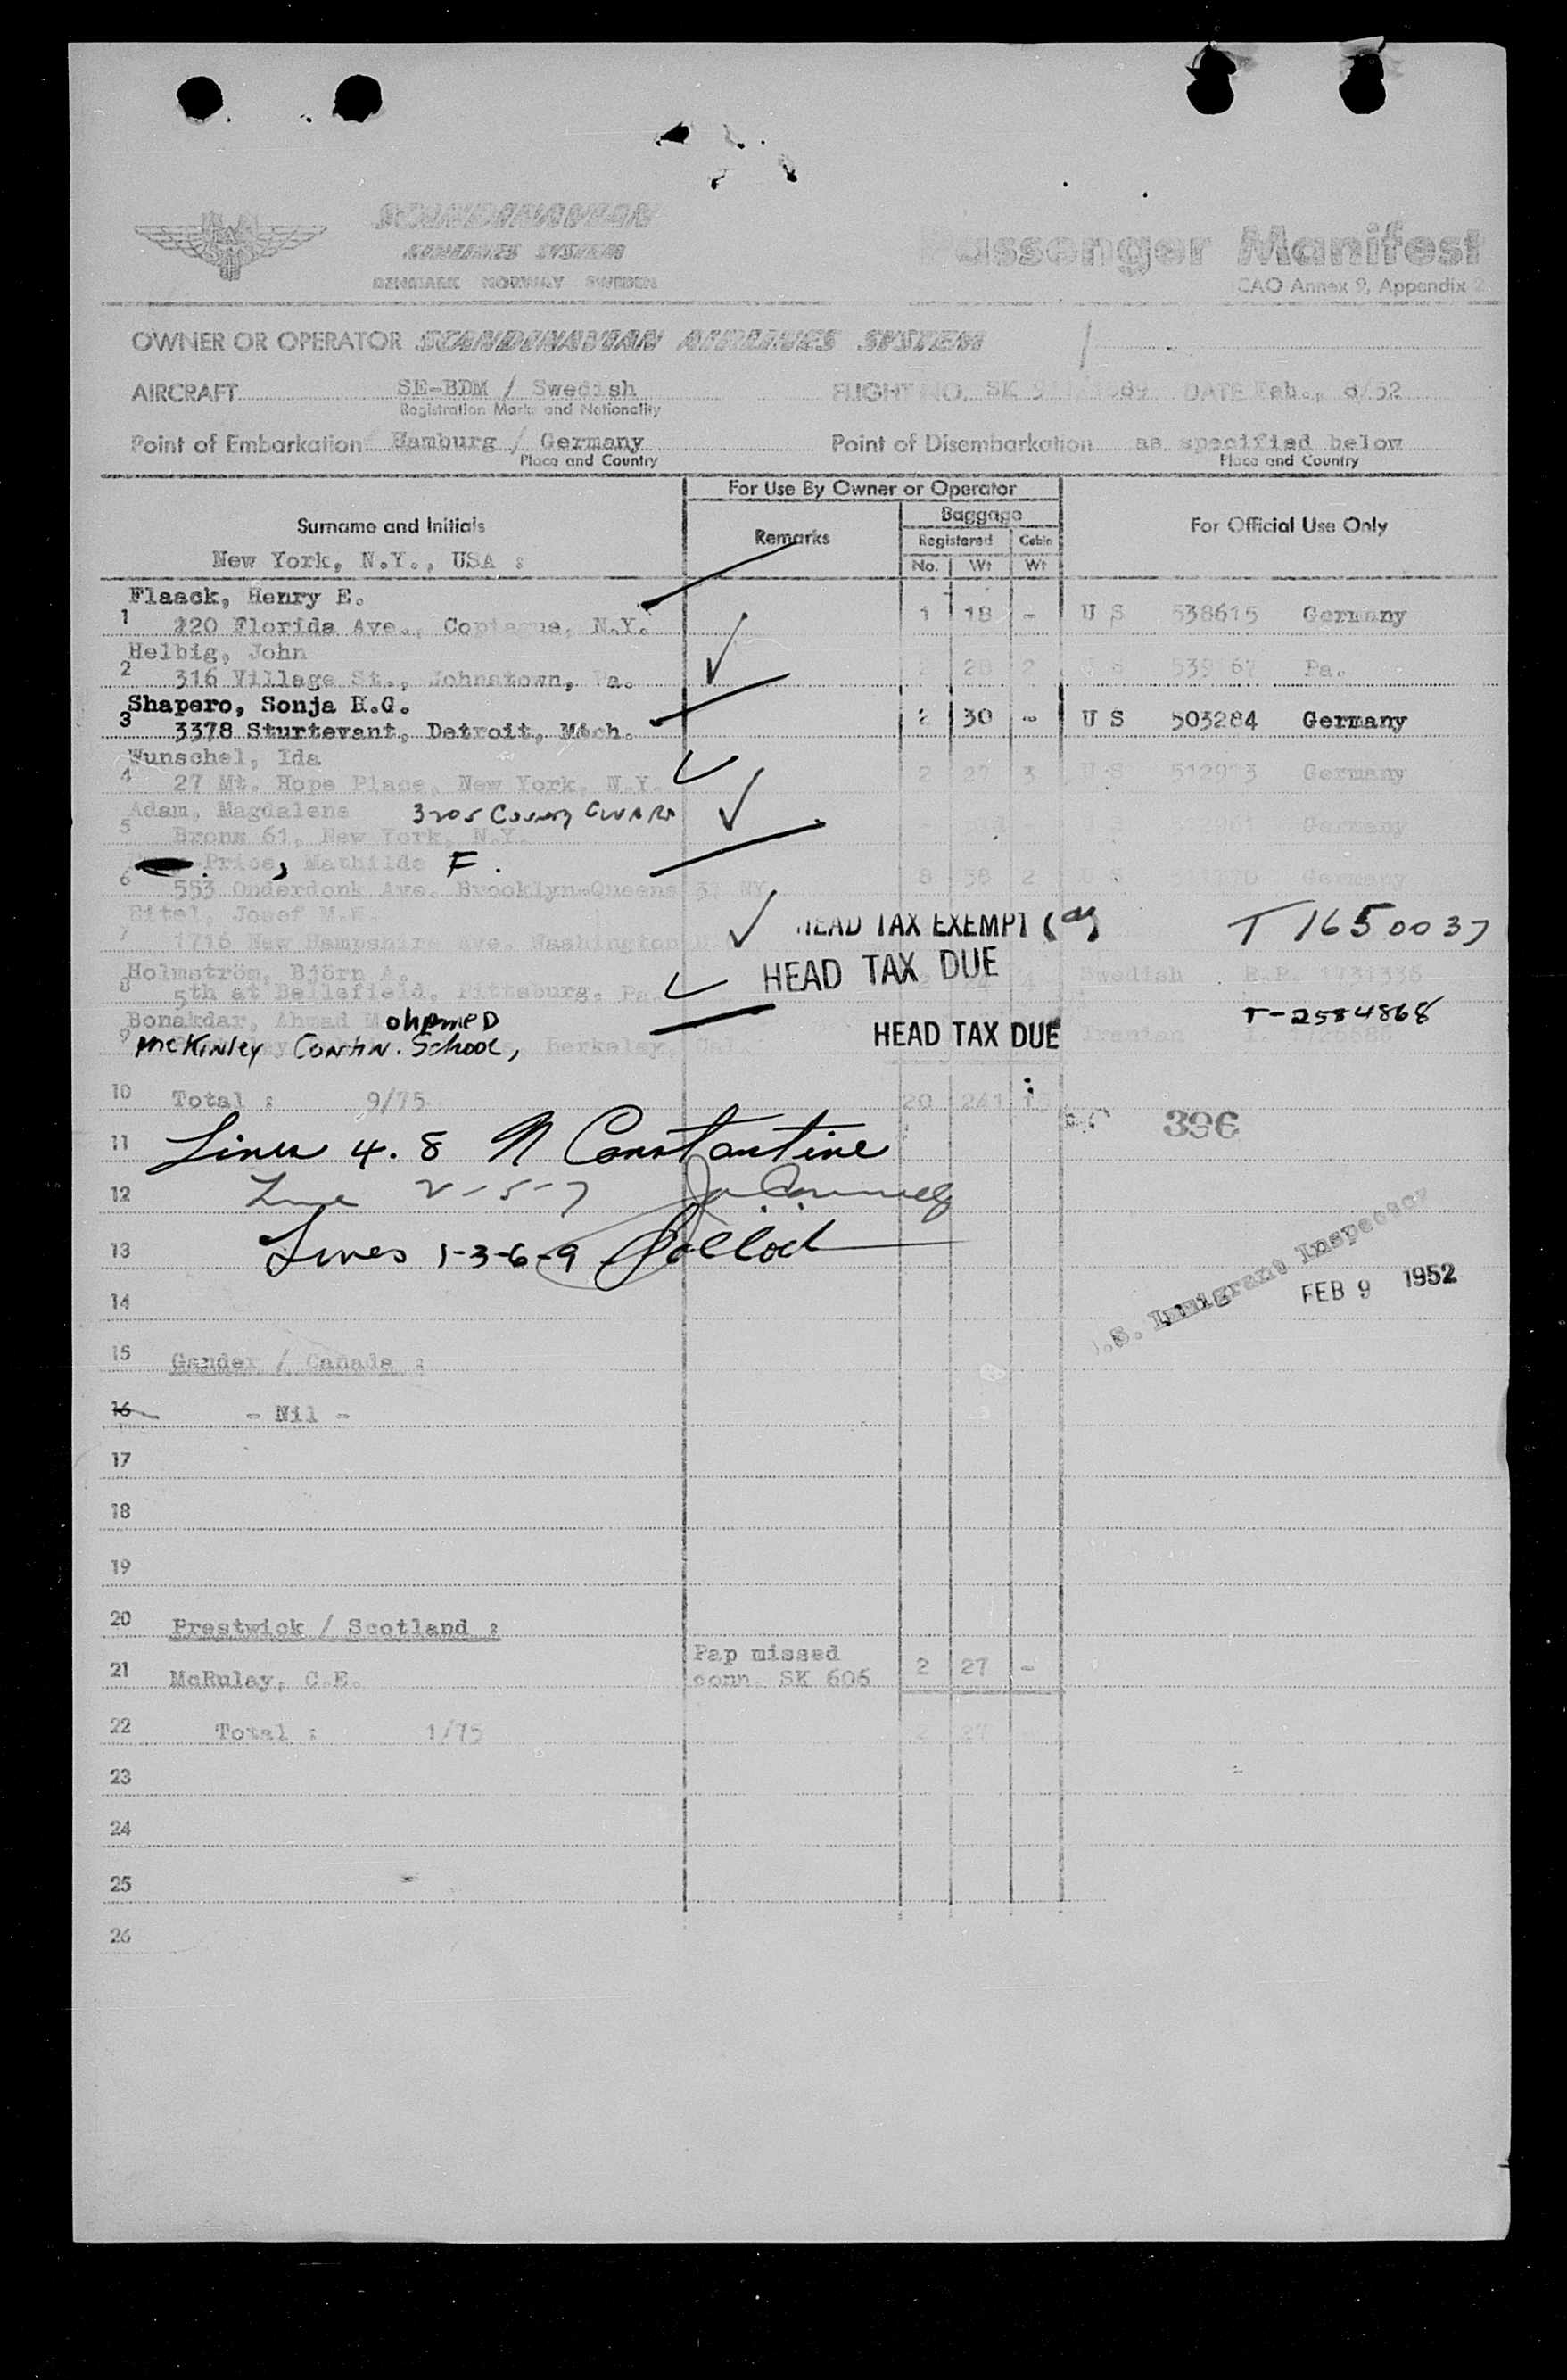 SCANDINAVIAN
AIRLINES SYSTEM
DENMARK NORWAY SWEDEN
Passenger Manifest
ICAO Annex 9, Appendix 2
OWNER OR OPERATOR SCANDINAVIAN AIRLINES SYSTEM
AIRCRAFT SE-BDM / Swedish
Registration Marks and Nationality
FLIGHT NO. SK DATE Feb., 8/52
Point of Embarkation Hamburg / Germany
Place and Country
Point of Disembarkation as specified below
Place and Country
For Use By Owner or Operator
Surname and Initials
Remarks
Baggage
Registered Cabin
No. Wt Wt
For Official Use Only
New York, N.Y., USA :
Flaack, Henry E.
1 220 Florida Ave., Copiague, N.Y. 1 18 - U S 538615 Germany
Helbig, John
2 316 Village St., Johnstown, Pa. 28 2 Pa.
Shapero, Sonja H.G.
3 3378 Sturtevant, Detroit, Mich. 2 30 - U S 503284 Germany
Wunschel, Ida
4 27 Mt. Hope Place, New York, N.Y. 2 27 3 U S Germany
Adam, Magdalene 3205
5 Bronx 61, New York, N.Y. Germany
Price, Mathilde F.
6 553 Onderdonk Ave. Brooklyn-Queens 37 NY 8 58 2 Germany
Eitel, Josef M.W.
7 1716 New Hampshire Ave. Washington HEAD TAX EXEMPT T 1650037
Holmström, Björn A. HEAD TAX DUE
8 5th at Bellefield, Pittsburg, Pa. 4 Swedish R.P. 1731336
Bonakdar, Ahmad Mohamed T-2584868
9 McKinley Contin. School, Berkeley, Cal. HEAD TAX DUE Iranian
10 Total : 9/75 20 241 13
396
11 Lines 4. 8 N Constantine
12 Line 2-5-7
13 Lines 1-3-6-9 Pollock
U.S. Immigrant Inspector
FEB 9 1952
14
15 Gander / Canada :
16 - Nil -
17
18
19
20 Prestwick / Scotland :
Pap missed
21 McRulay, C.E. conn. SK 606 2 27 -
22 Total : 1/75 2 27
23
24
25
26